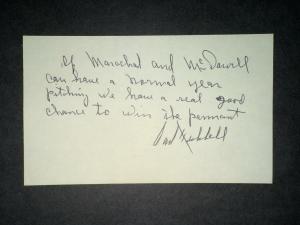 If Marachal and McDowell
can have a normal year
pitching we have a real good
chance to win the pennant
Carl Hubbell